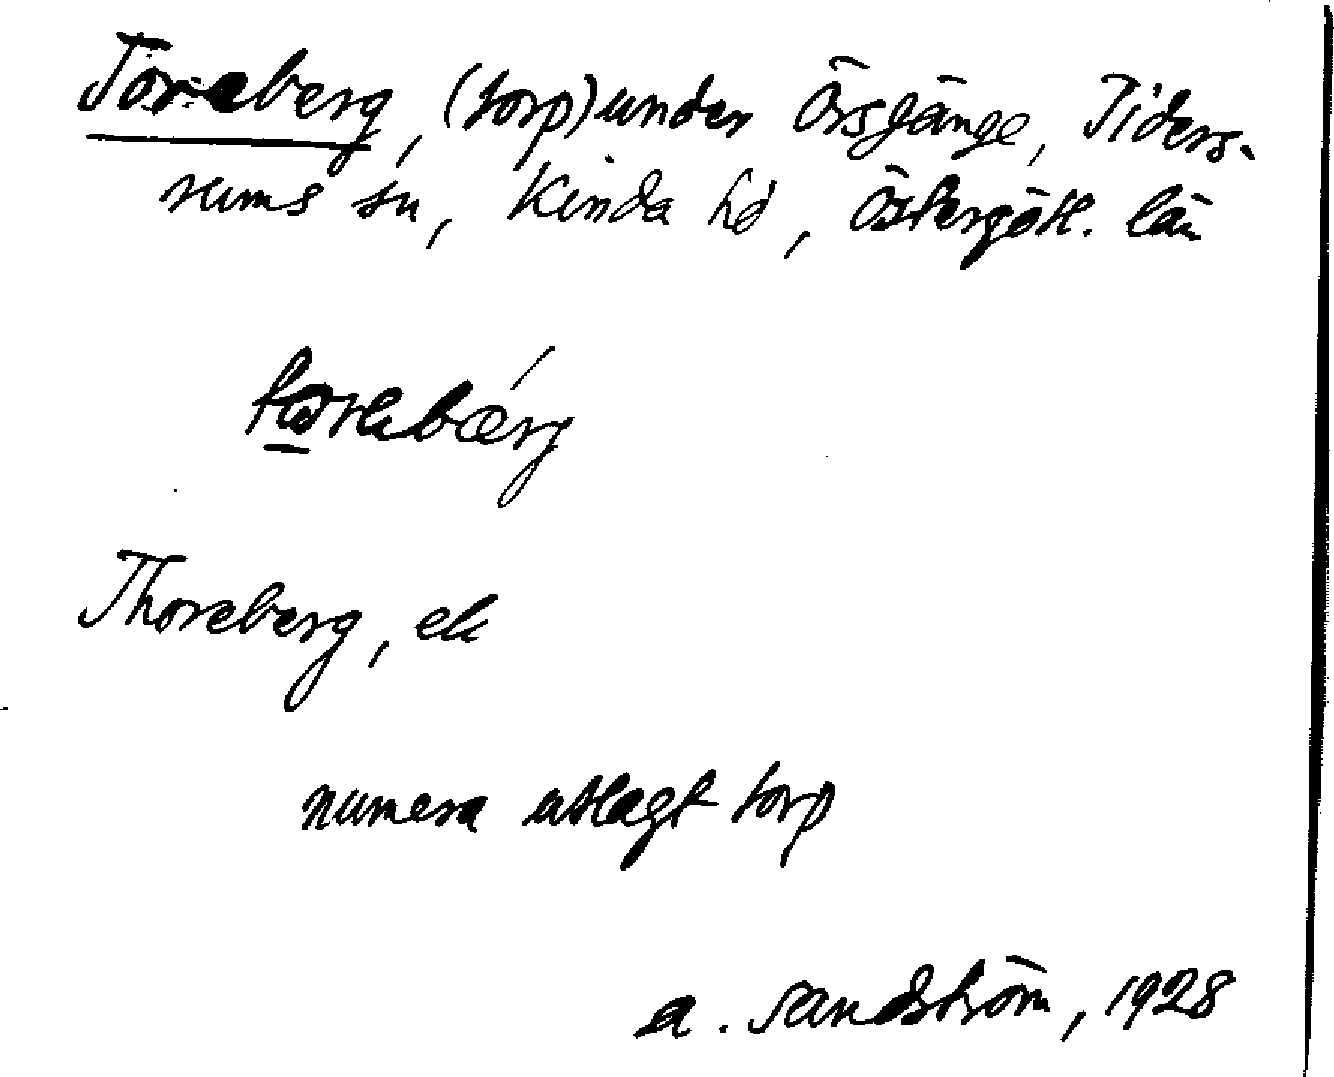 Toreberg, (torp) under Örsgänge, Tiders-
rums sn, Kinda hd, Östergötl. län
Thoreberg, ek
numera utlagt torp
A. Sandström, 1928